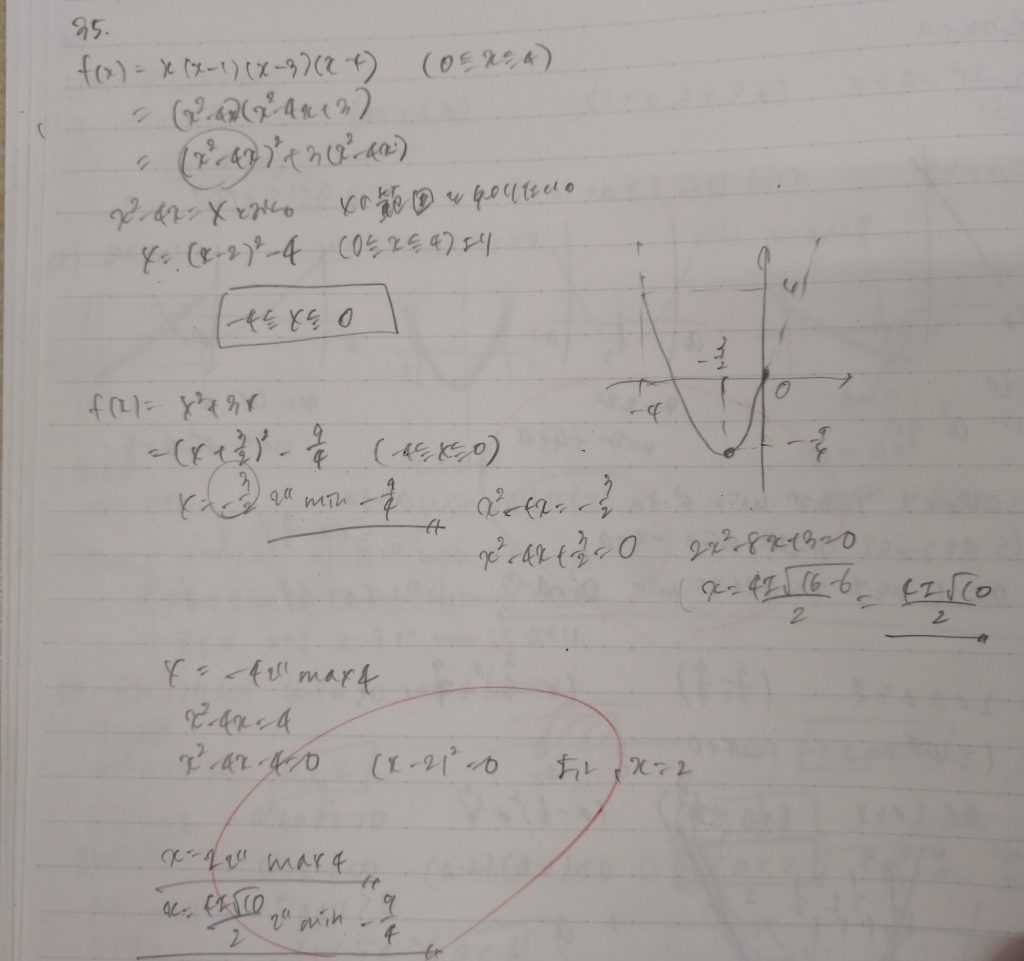 35.
f(x) = x(x-1)(x-3)(x-4) (0≦x≦4)
= (x²-4x)(x²-4x+3)
= (x²-4x)²+3(x²-4x)
x²-4x=X X の範囲
X = (x-2)²-4 (0≦x≦4) より
-4≦X≦0
4
-3/2
-4
0
-9/4
f(x) = X²+3X
= (X+3/2)² - 9/4 (-4≦X≦0)
X = -3/2 で min -9/4
x²-4x=-3/2
x²-4x+3/2=0 2x²-8x+3=0
x=4±√16-6/2 = 4±√10/2
X = -4 で max 4
x²-4x=4
x²-4x-4=0 (x-2)²=0 より x=2
x=2で max 4
x=4±√10/2 で min -9/4